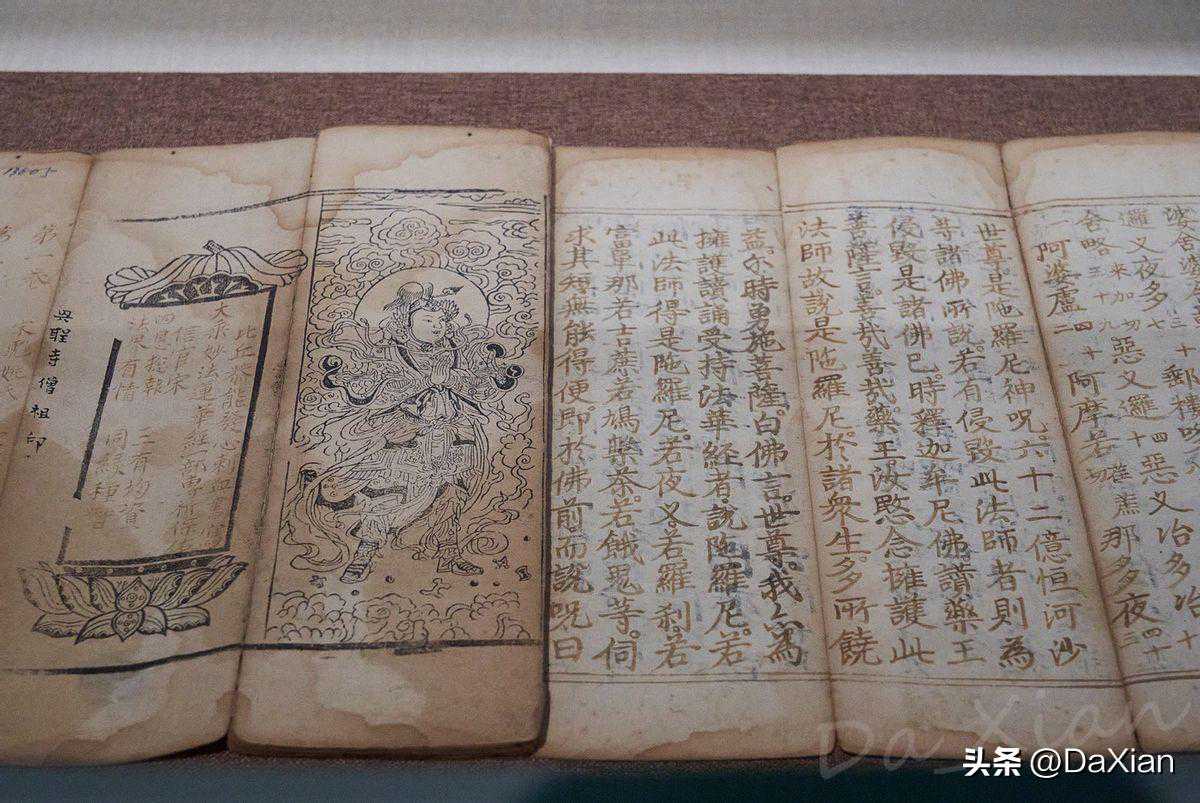 惡叉冶多冶
惡叉邏
阿婆盧 阿摩若 那多夜
世尊是陁羅尼神呪六十二億恒河沙
等諸佛所說若有侵毀此法師者則為
侵毀是諸佛已時釋迦牟尼佛讚藥王
菩薩言善哉善哉藥王汝愍念擁護此
法師故說是陁羅尼於諸衆生多所饒
益尓時勇施菩薩白佛言世尊我亦為
擁護讀誦受持法華經者說陁羅尼若
此法師得是陁羅尼若夜叉若羅刹若
富單那若吉蔗若鳩槃荼若餓鬼等伺
求其短無能得便即於佛前而說呪曰
比丘 能發心刺血書
大乘妙法蓮華經一部專祈保
信官宋
四恩總報 三有均資
法界有情 同緣種智
聖寺僧祖印
头条 @DaXian
Da_Xian